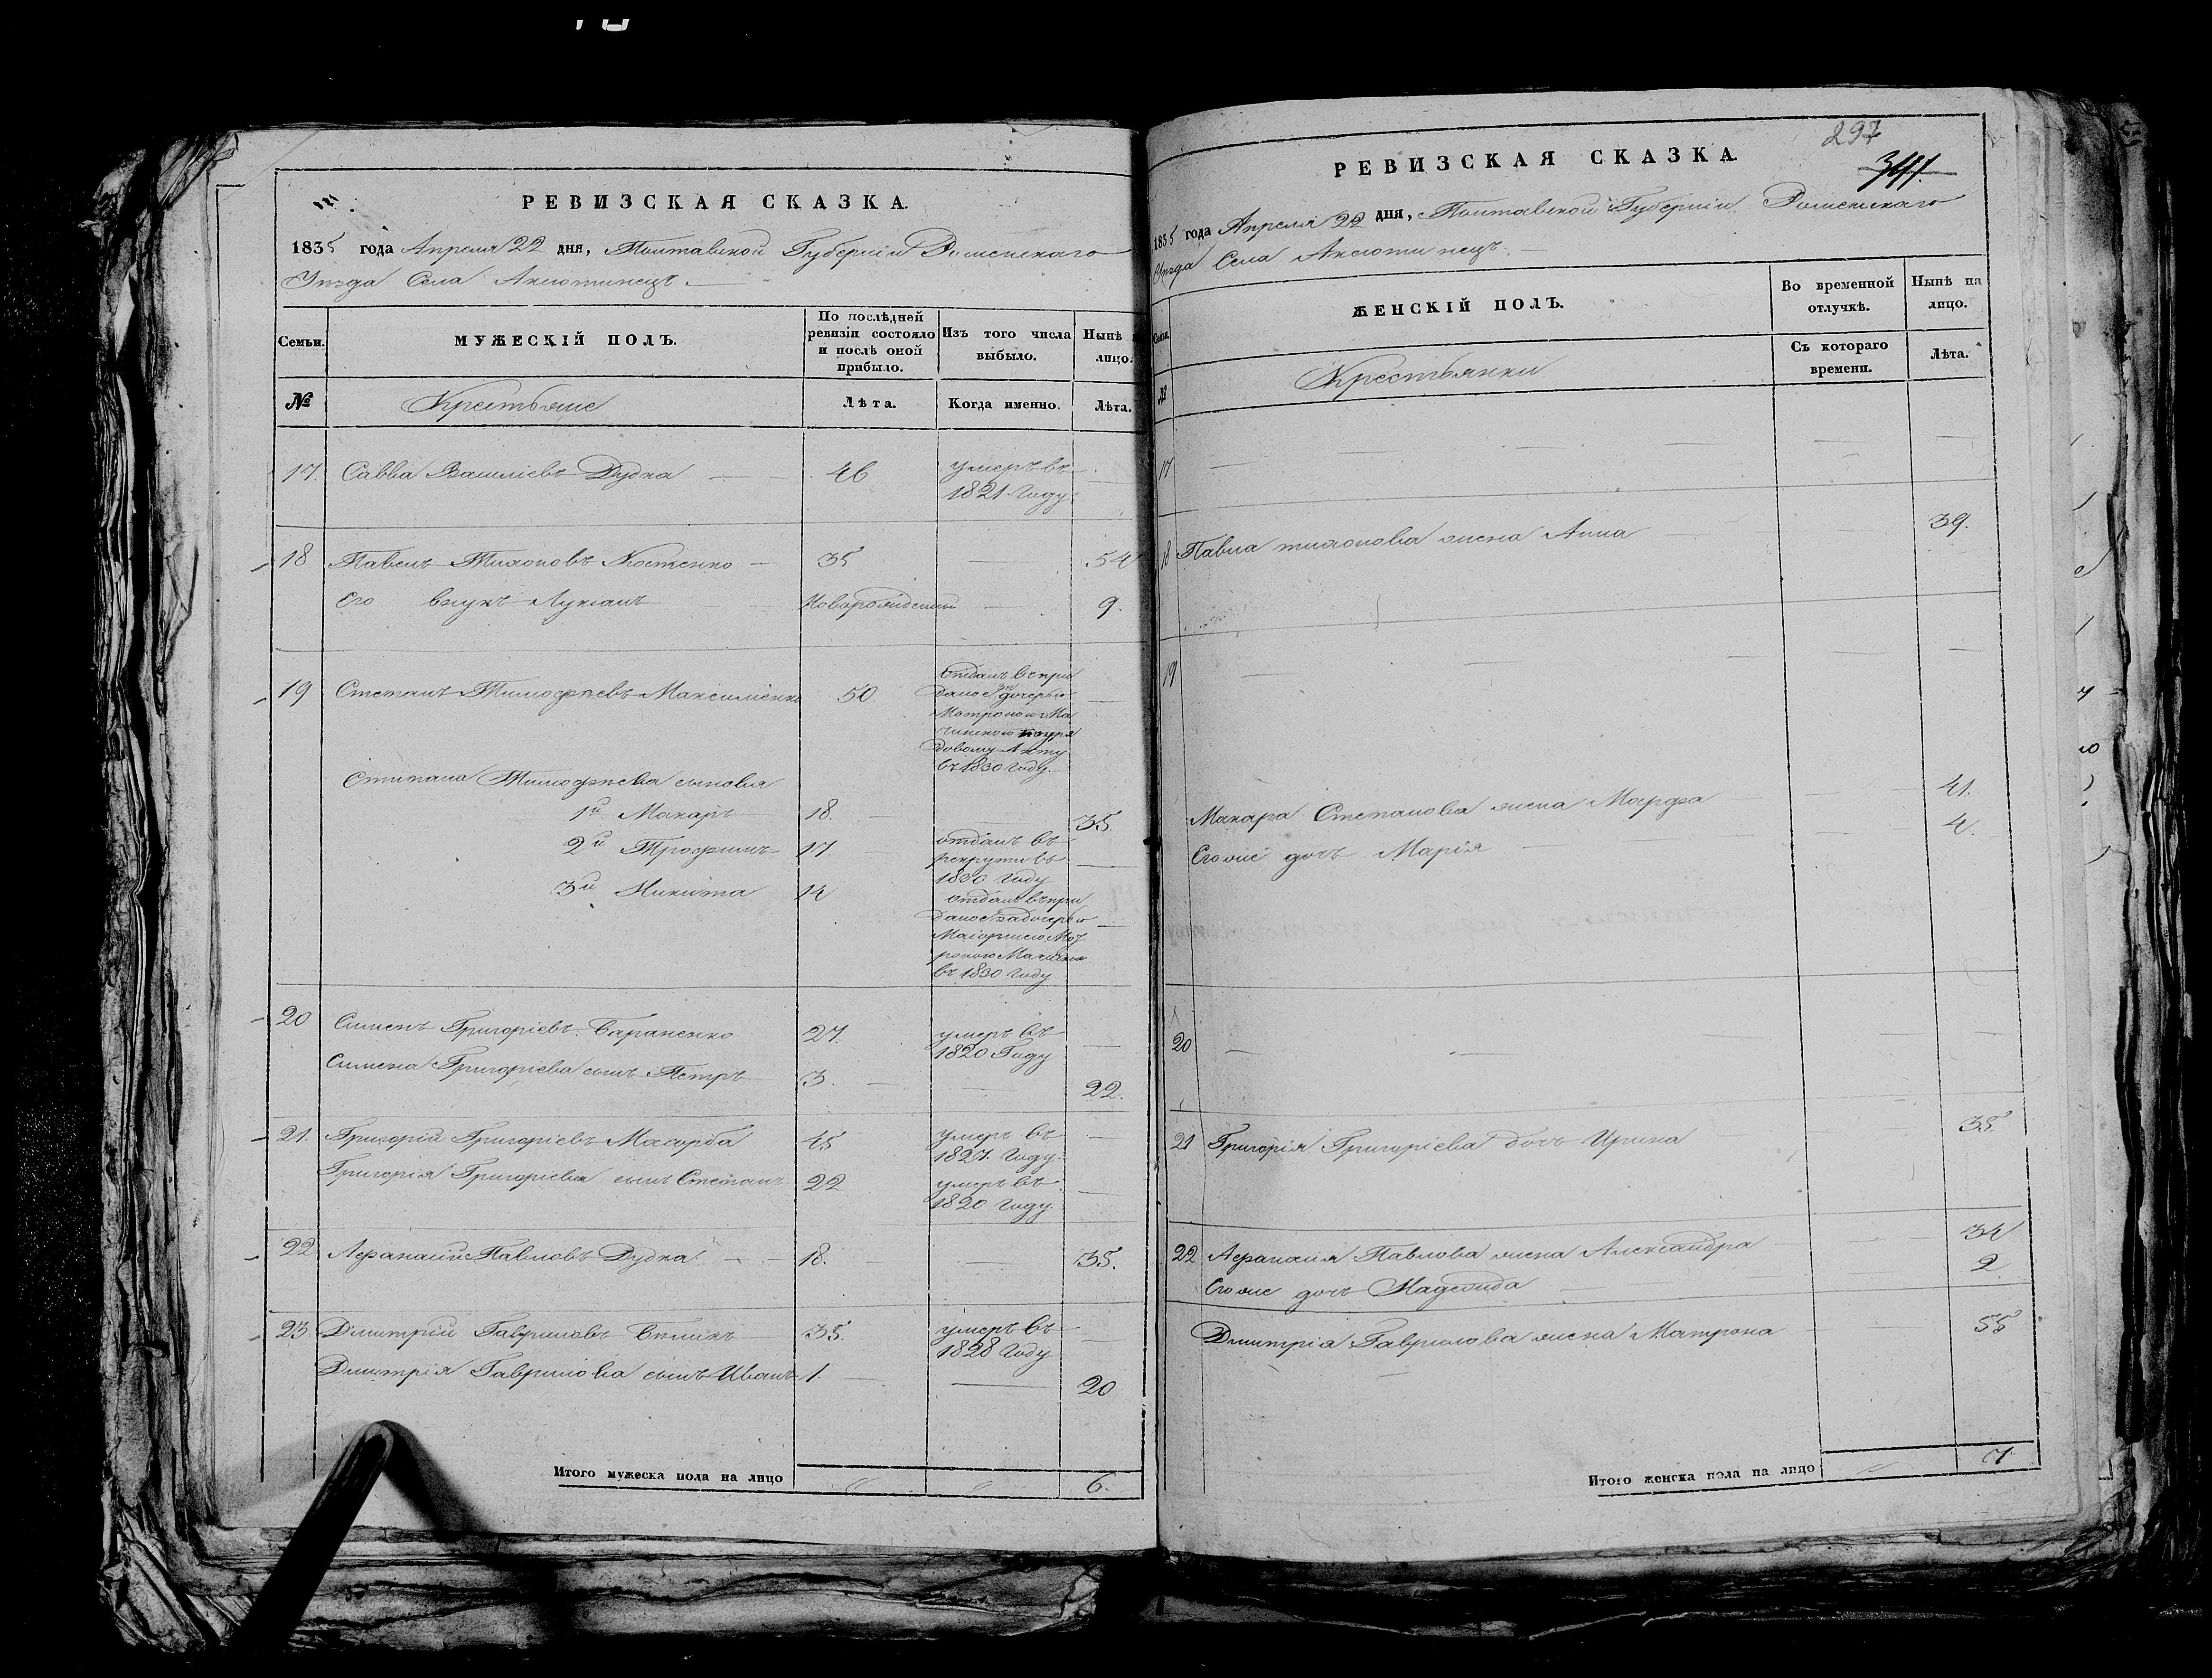 РЕВИЗСКАЯ СКАЗКА.
1835 года Апреля 22 дня, Полтавской Губерніи Роменскаго
Уезда Села Аксютинецъ.
Семьи.
МУЖЕСКІЙ ПОЛЪ.
По послѣдней ревизіи состояло и послѣ оной прибыло.
Изъ того числа выбыло.
Нынѣ лицо.
№
Крестьяне
Лѣта.
Когда именно.
Лѣта.
17. Савва Васильевъ Дудка 46 умеръ въ
1821 Году
18 Павелъ Тихоновъ Костенко 35 54
Его внукъ Лукіанъ Новорожденный 9.
19 Степанъ Тимофѣевъ Максименко 50. отданъ въ при
даное за дочерью
Матроною Ма
рядовому Акту
въ 1830 Году.
Степана Тимофѣева сыновья
1й Макаръ 18. 35
2й Трофимъ 17. отданъ въ
рекруты въ
1830 Году
3й Никита 14 отданъ въ при
даное за дочерью
въ 1830 Году
20 Сименъ Григоріевъ Бараненко 27. умеръ въ
1820 Году
Симена Григоріева сынъ Петръ 3. 22.
21. Григорій Григоріевъ Масюрба 45 умеръ въ
1827. Году.
Григорія Григоріева сынъ Степанъ 22 умеръ въ
1820 Году.
22 Афанасій Павловъ Дудка 18. 35.
23 Дмитрій Гавриловъ Билимъ 35. умеръ въ
1828 Году
Дмитрія Гаврилова сынъ Иванъ 1. 20
Итого мужеска пола на лицо 6.
297
РЕВИЗСКАЯ СКАЗКА.
1835 года Апреля 22 дня, Полтавской Губерніи Роменскаго
Уезда Села Аксютинецъ.
ЖЕНСКІЙ ПОЛЪ.
Во временной отлучкѣ.
Нынѣ на лицо.
Съ котораго времени.
Лѣта.
№
Крестьянки
17
18 Павла Тихонова жена Анна 39.
19
Макара Степанова жена Марфа 41.
Егоже дочь Марія 4.
20
21 Григорія Григоріева дочь Ирина 35
22 Афанасія Павлова жена Александра 34
Егоже дочь Надежда 2
Дмитрія Гаврилова жена Матрона 55
Итого женска пола на лицо 7